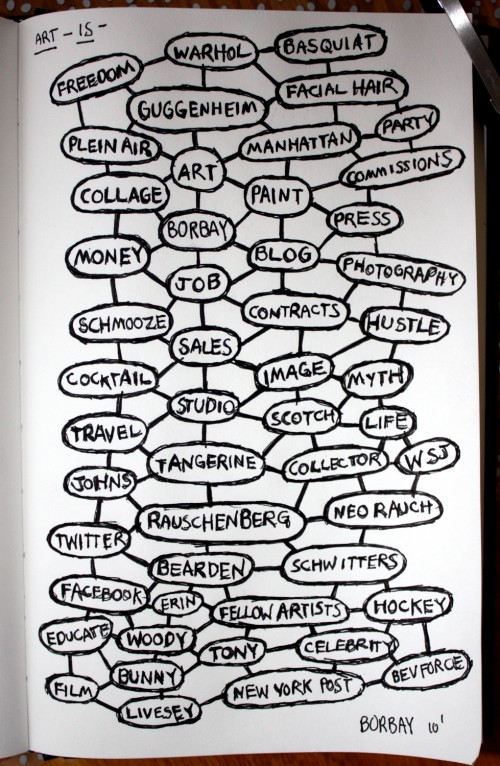 ART - IS -
WARHOL
BASQUIAT
FREEDOM
FACIAL HAIR
GUGGENHEIM
PARTY
PLEIN AIR
MANHATTAN
ART
COMMISSIONS
COLLAGE
PAINT
BORBAY
PRESS
MONEY
BLOG
PHOTOGRAPHY
JOB
CONTRACTS
SCHMOOZE
HUSTLE
SALES
COCKTAIL
IMAGE
MYTH
STUDIO
SCOTCH
LIFE
TRAVEL
TANGERINE
COLLECTOR
WSJ
JOHNS
RAUSCHENBERG
NEO RAUCH
TWITTER
BEARDEN
SCHWITTERS
FACEBOOK
ERIN
FELLOW ARTISTS
HOCKEY
EDUCATE
WOODY
TONY
CELEBRITY
FILM
BUNNY
NEW YORK POST
BEVFORCE
LIVESEY
BORBAY 10'